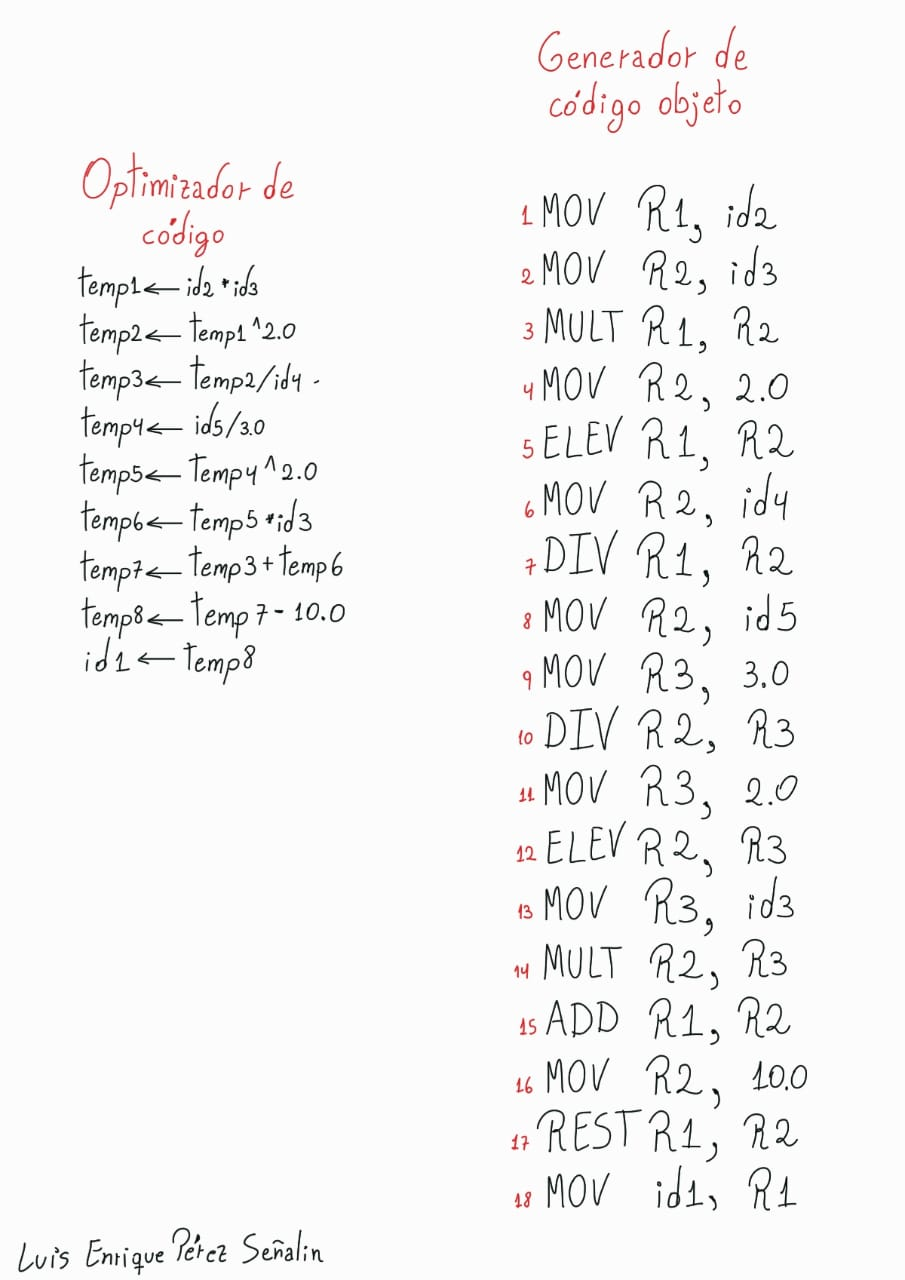 Optimizador de
código
temp1← id2 * id3
temp2← temp1 ^2.0
temp3← temp2/id4 .
temp4← id5/3.0
temp5← temp4 ^2.0
temp6← temp5 *id3
temp7← temp3 + temp6
temp8← temp7 - 10.0
id1 ← temp8
Generador de
código objeto
1 MOV R1, id2
2 MOV R2, id3
3 MULT R1, R2
4 MOV R2, 2.0
5 ELEV R1, R2
6 MOV R2, id4
7 DIV R1, R2
8 MOV R2, id5
9 MOV R3, 3.0
10 DIV R2, R3
11 MOV R3, 2.0
12 ELEV R2, R3
13 MOV R3, id3
14 MULT R2, R3
15 ADD R1, R2
16 MOV R2, 10.0
17 REST R1, R2
18 MOV id1, R1
Luis Enrique Pérez Señalin